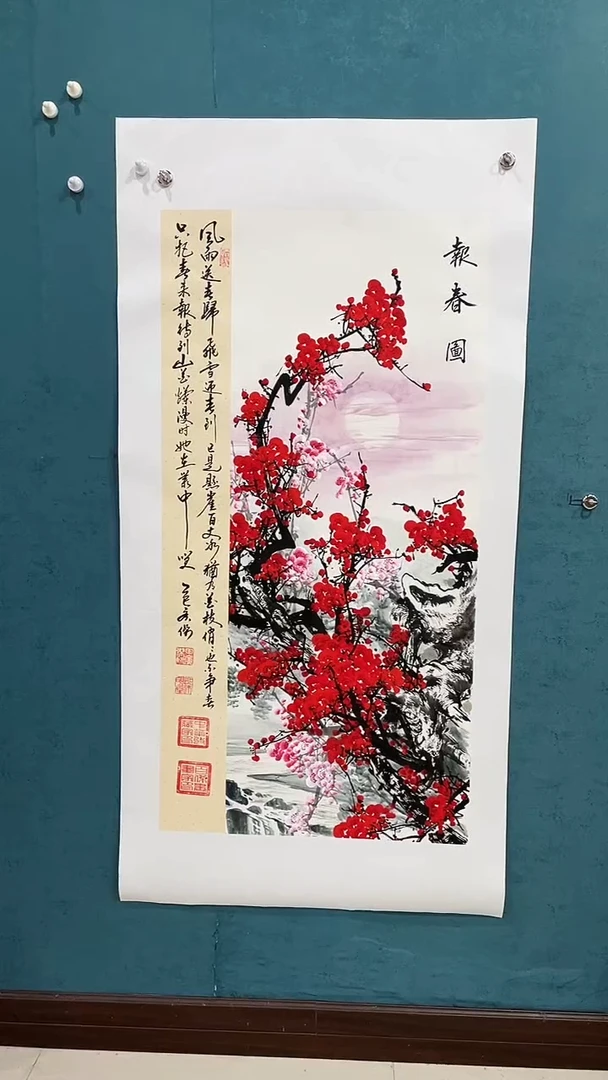 報春圖
風雨送春歸 飛雪迎春到 已是懸崖百丈冰 猶有花枝俏〻也不爭春
只把春來報待到山花爛漫時她在叢中咲